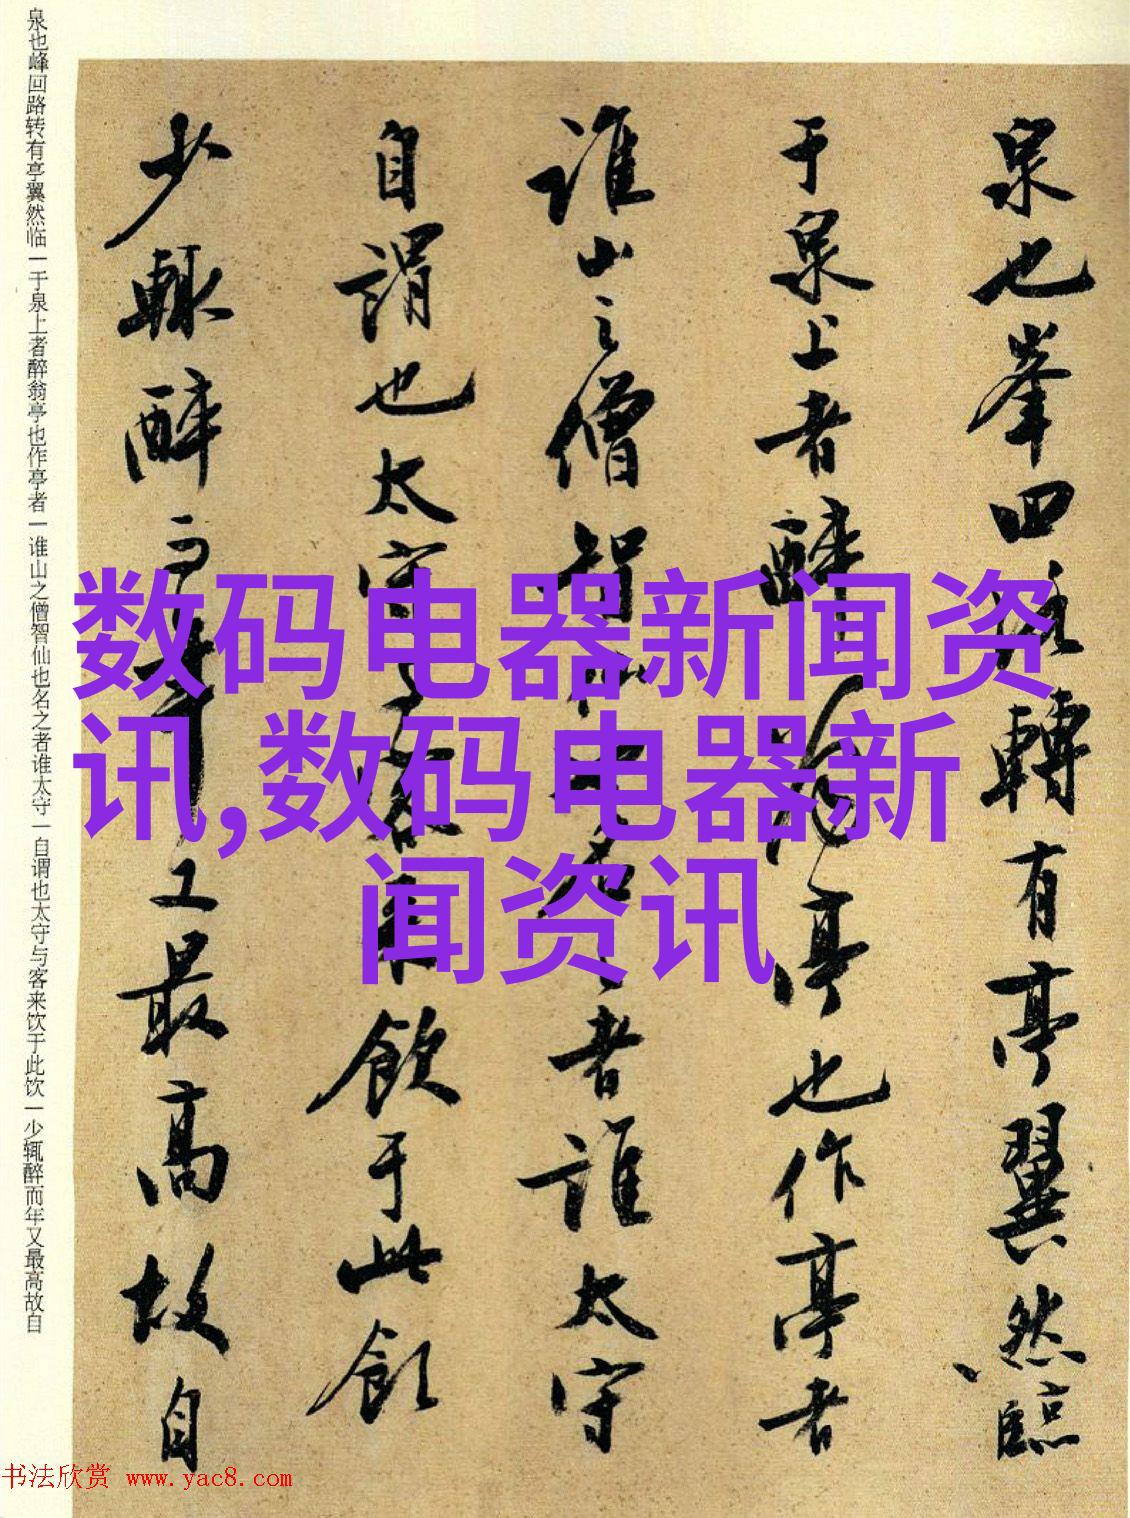 泉也峰回路转有亭翼然临一于泉上者醉翁亭也作亭者一谁山之僧智仙也名之者谁太守一自谓也太守与客来饮于此饮一少辄醉而年又最高故自
泉也峯回路轉有亭翼然臨
于泉上者醉翁亭也作亭者
誰山之僧智仙也名之者誰太守
自謂也太守与客来飲于此飲
少輙醉而年又最高故自
数码电器新闻资
讯,数码电器新
闻资讯
书法欣赏 www.yac8.com